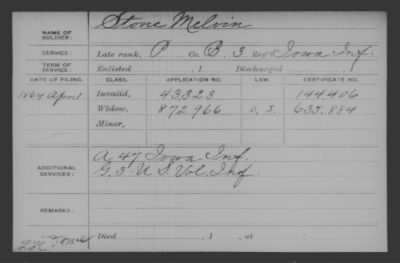 NAME OF SOLDIER: Stone Melvin
SERVICE: Late rank, P Co. B, 3 Reg't Iowa Inf.
TERM OF SERVICE: Enlisted , 1 Discharged , 1
DATE OF FILING. CLASS. APPLICATION NO. LAW. CERTIFICATE NO.
1864 April Invalid, 43,323 144.406
Widow, 872966 O. I. 633.884
Minor,
ADDITIONAL SERVICES: A 47 Iowa Inf.
G. 3 - U S Vol. Inf.
REMARKS:
Died , 1 , at